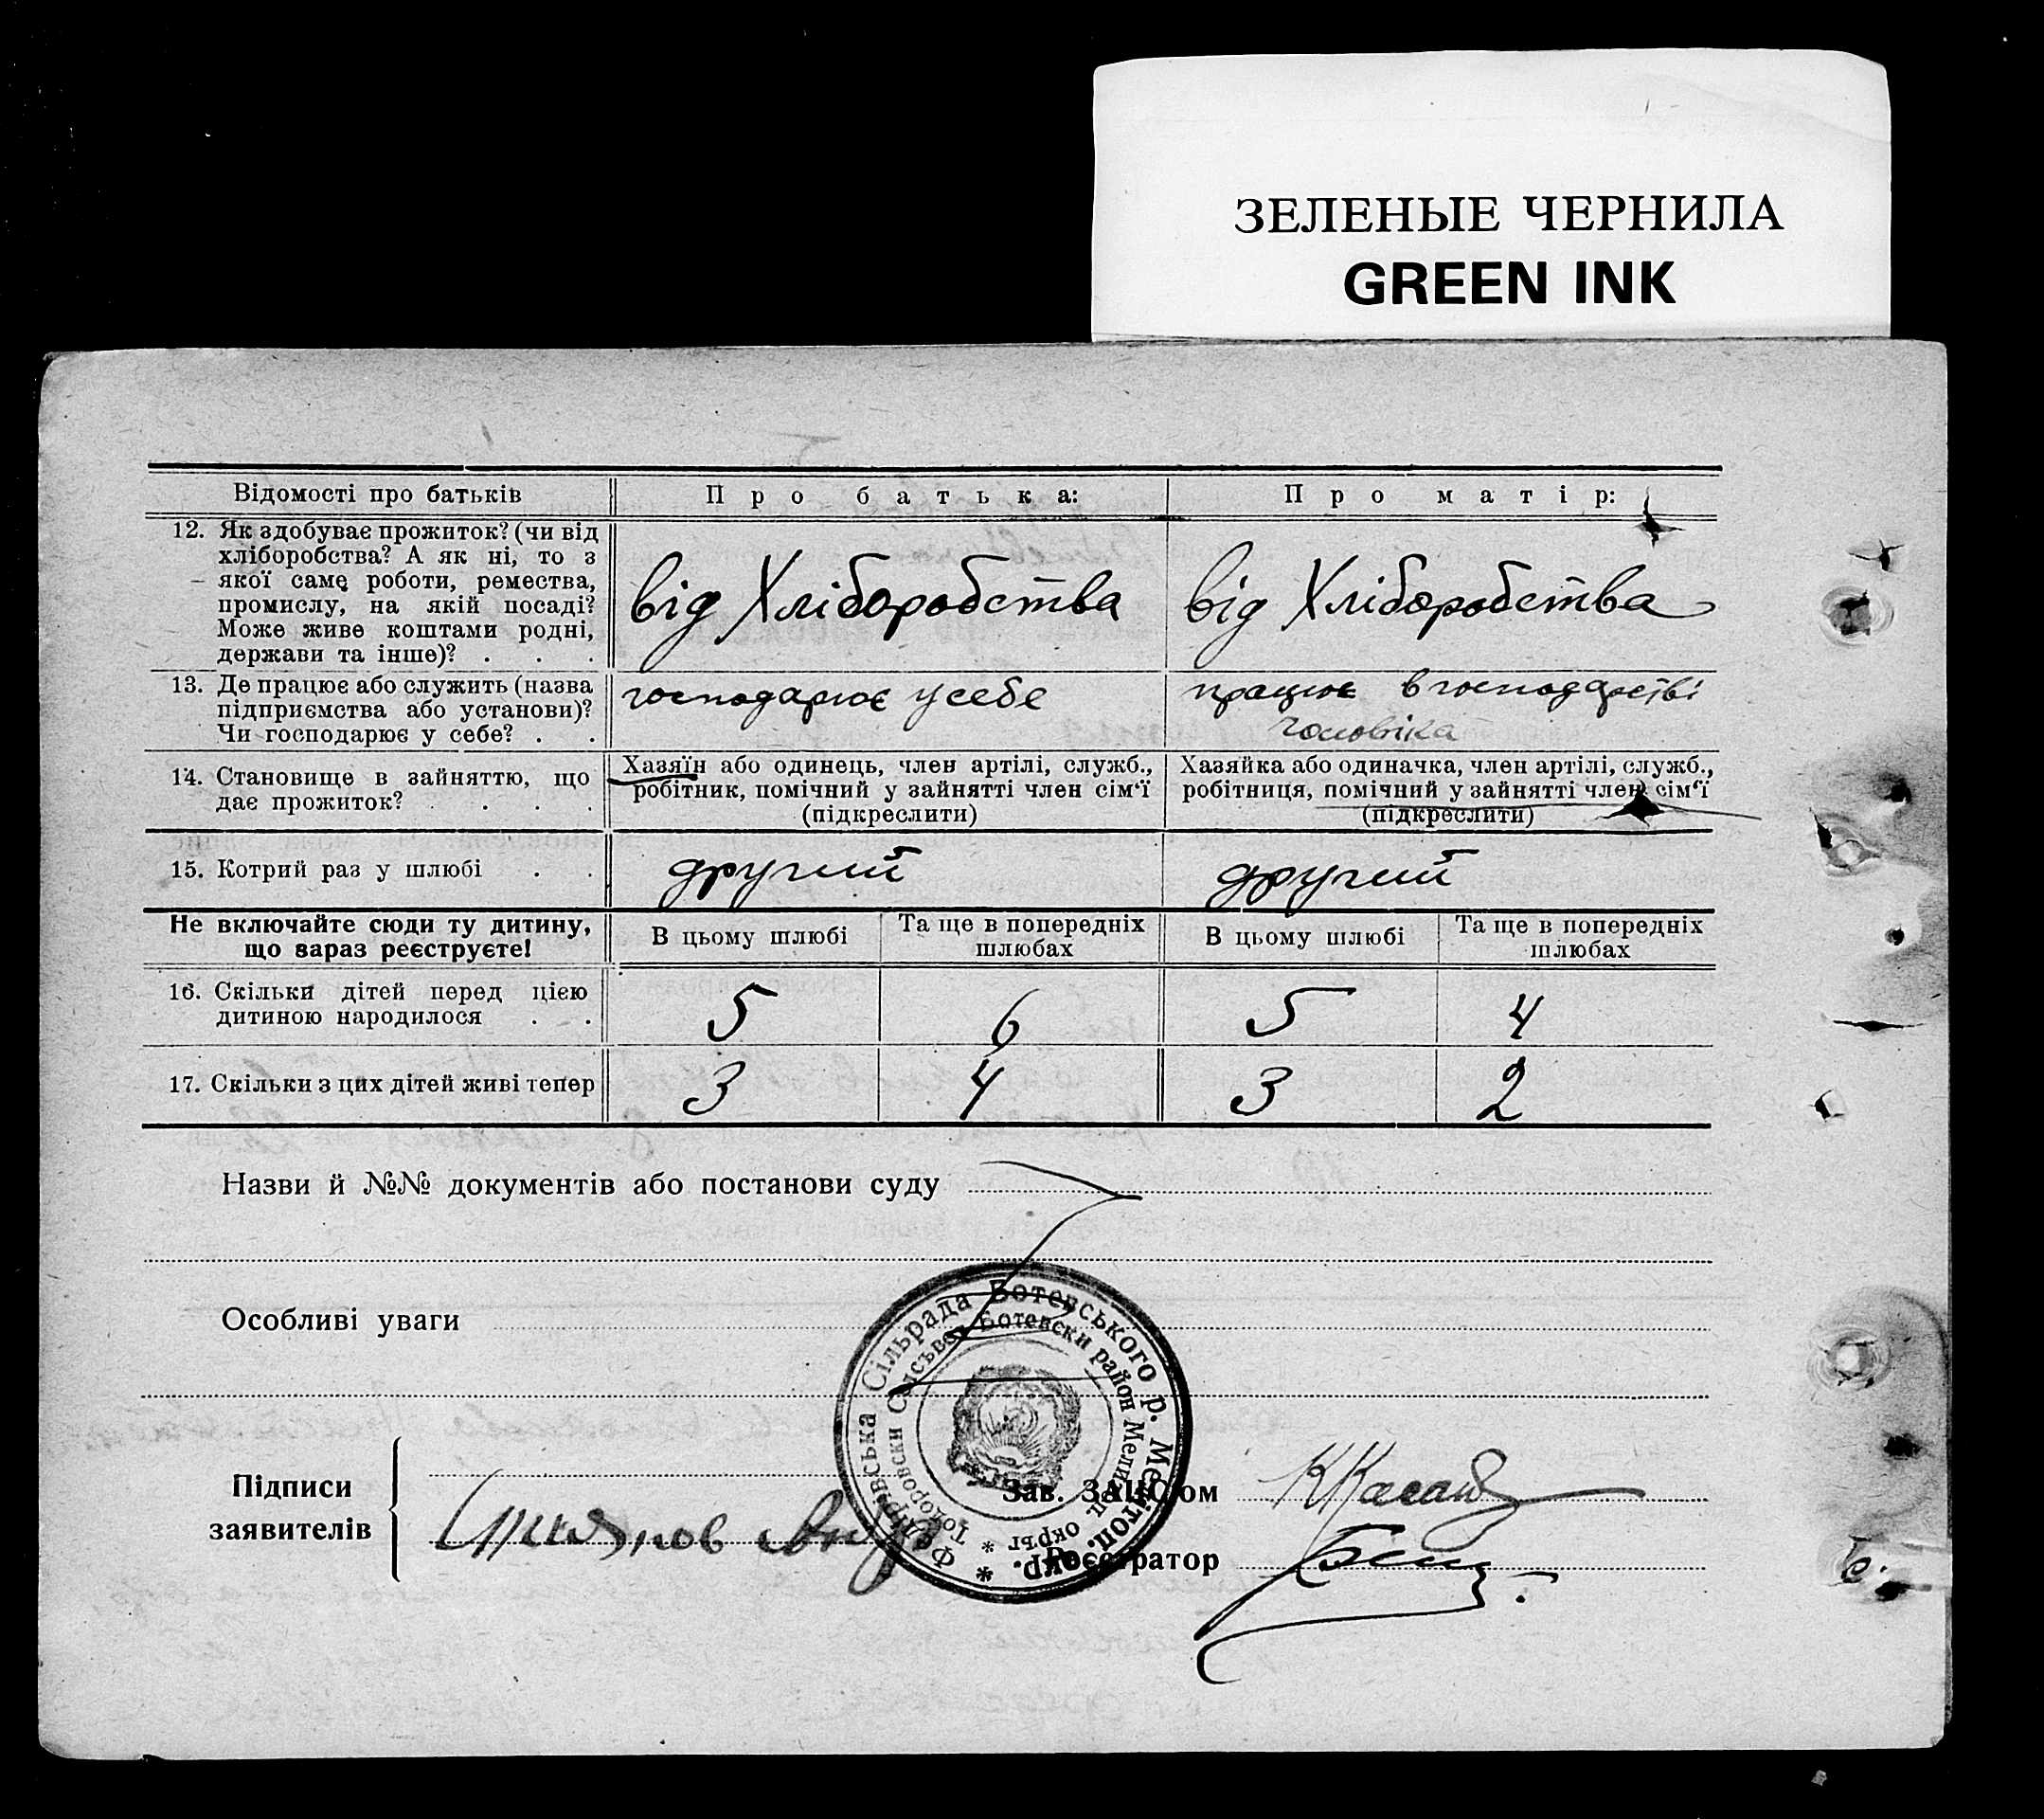 ЗЕЛЕНЫЕ ЧЕРНИЛА
GREEN INK
Відомості про батьків
Про батька:
Про матір:
12. Як здобуває прожиток? (чи від
хліборобства? А як ні, то з
якої саме роботи, ремества,
промислу, на якій посаді?
Може живе коштами родні,
держави та інше)? . . .
від Хліборобства
від Хліборобства
13. Де працює або служить (назва
підприємства або установи)?
Чи господарює у себе? . .
господарює у себе
працює в господарстві
чоловіка
14. Становище в зайняттю, що
дає прожиток? . . . .
Хазяїн або одинець, член артілі, служб.,
робітник, помічний у зайнятті член сім'ї
(підкреслити)
Хазяйка або одиначка, член артілі, служб.,
робітниця, помічний у зайнятті член сім'ї
(підкреслити)
15. Котрий раз у шлюбі . .
другий
другий
Не включайте сюди ту дитину,
що зараз реєструєте!
В цьому шлюбі
Та ще в попередніх
шлюбах
В цьому шлюбі
Та ще в попередніх
шлюбах
16. Скільки дітей перед цією
дитиною народилося . .
5
6
5
4
17. Скільки з цих дітей живі тепер
3
4
3
2
Назви й №№ документів або постанови суду
Особливі уваги
Федорівська Сільрада Ботевського р. Мелітоп. окр. *
Тодоровски Селсъвет Ботевски район Мелитоп. окръг *
Підписи
заявителів
Зав. ЗАГС'ом
Реєстратор